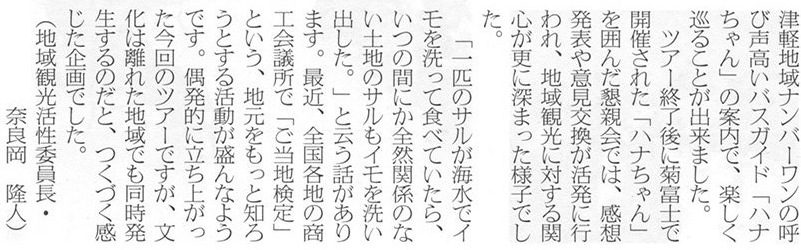 津軽地域ナンバーワンの呼
び声高いバスガイド「ハナ
ちゃん」の案内で、楽しく
巡ることが出来ました。
ツアー終了後に菊富士で
開催された「ハナちゃん」
を囲んだ懇親会では、感想
発表や意見交換が活発に行
われ、地域観光に対する関
心が更に深まった様子でし
た。
「一匹のサルが海水でイ
モを洗って食べていたら、
いつの間にか全然関係のな
い土地のサルもイモを洗い
出した。」と云う話があり
ます。最近、全国各地の商
工会議所で「ご当地検定」
という、地元をもっと知ろ
うとする活動が盛んなよう
です。偶発的に立ち上がっ
た今回のツアーですが、文
化は離れた地域でも同時発
生するのだと、つくづく感
じた企画でした。
（地域観光活性委員長・
奈良岡　隆人）